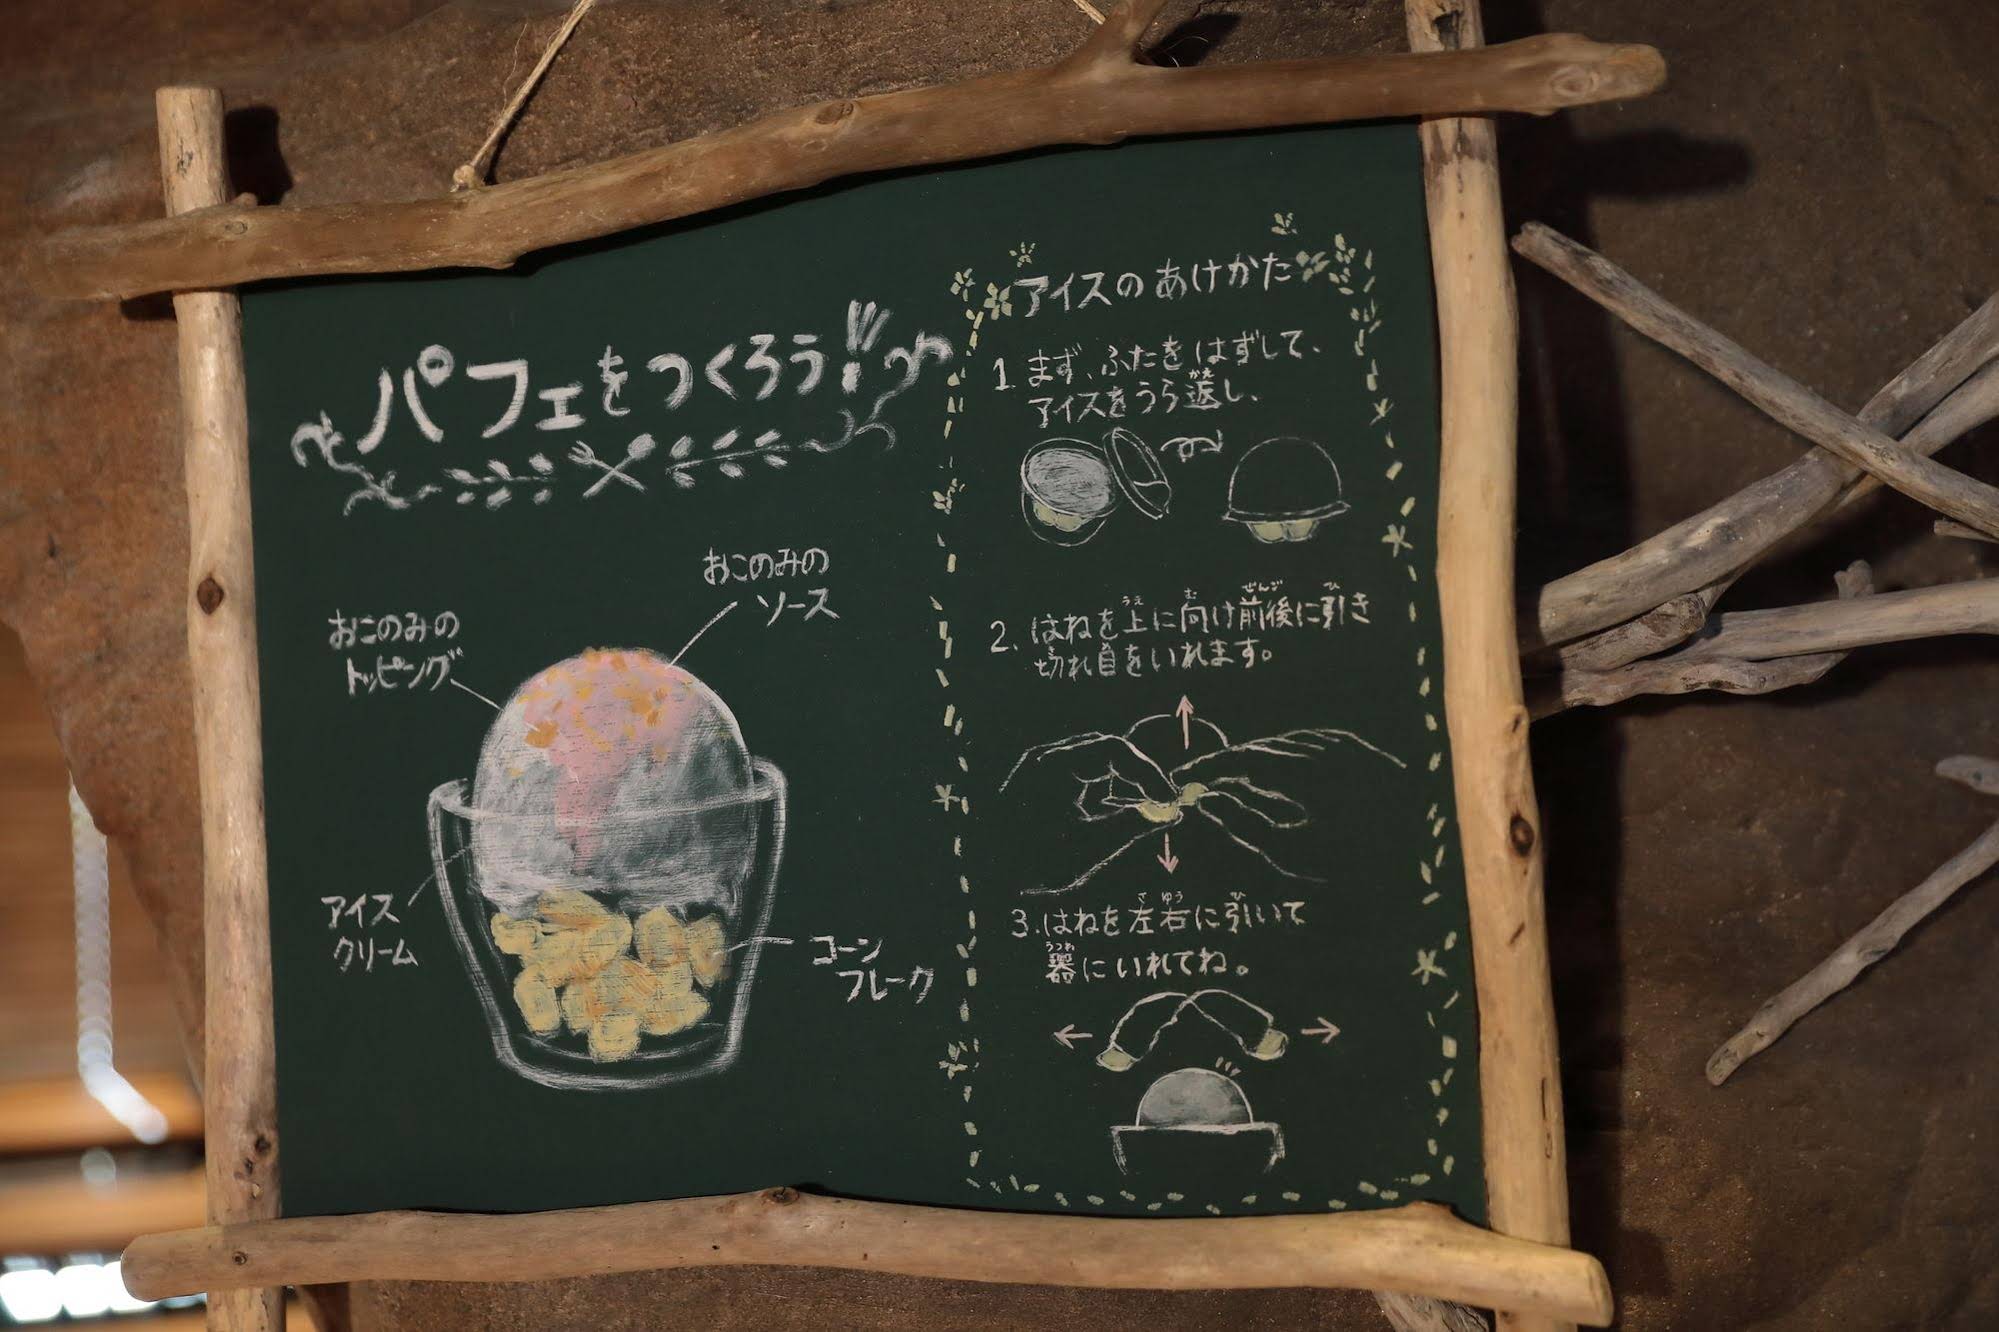 パフェをつくろう!!
おこのみの
ソース
おこのみの
トッピング
アイス
クリーム
コーン
フレーク
アイスのあけかた
1. まず、ふたをはずして、
アイスをうら返し、
2. はねを上に向け前後に引き
切れ目をいれます。
3. はねを左右に引いて
器にいれてね。